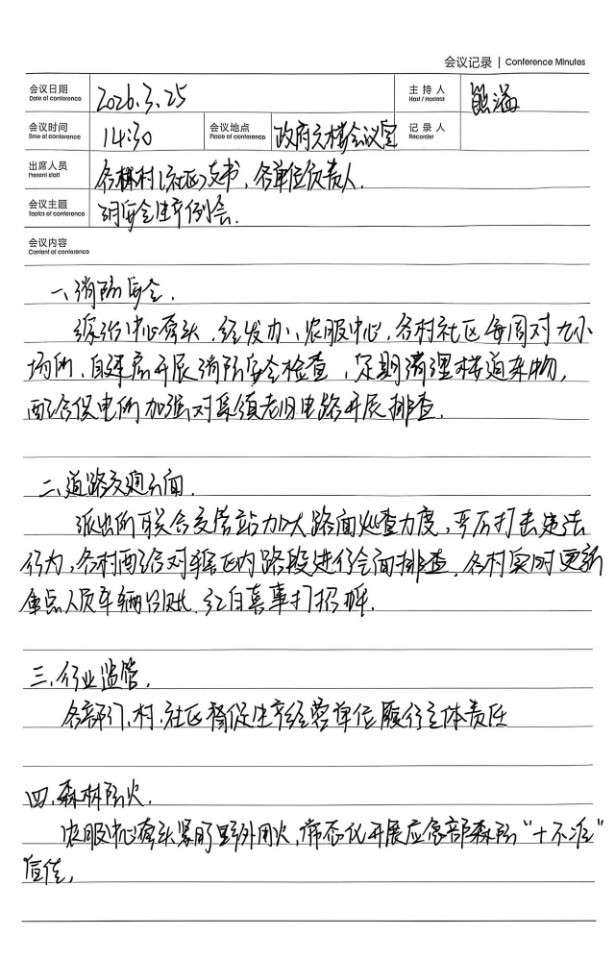 会议记录 | Conference Minutes
会议日期 Date of conference 2026.3.25 主持人 Host / Hostess 熊涵
会议时间 Time of conference 14:30 会议地点 Place of conference 政府六楼会议室 记录人 Recorder
出席人员 Present staff 各村(社区)支书、各单位负责人.
会议主题 Topics of conference 3月安全生产例会.
会议内容 Content of conference
一、消防安全.
综治中心牵头, 经发办、农服中心, 各村社区每周对九小
场所、自建房开展消防安全检查, 定期清理楼道杂物,
配合供电所加强对老旧电路开展排查.
二、道路交通方面.
派出所联合交管站加大路面巡查力度, 严厉打击违法
行为, 各村配合对辖区内路段进行全面排查, 各村实时更新
重点人员车辆台账, 红白喜事打招呼.
三、行业监管.
各部门、村、社区督促生产经营单位履行主体责任
四、森林防火.
农服中心牵头紧盯野外用火, 常态化开展应急部森防“十不准”
宣传,